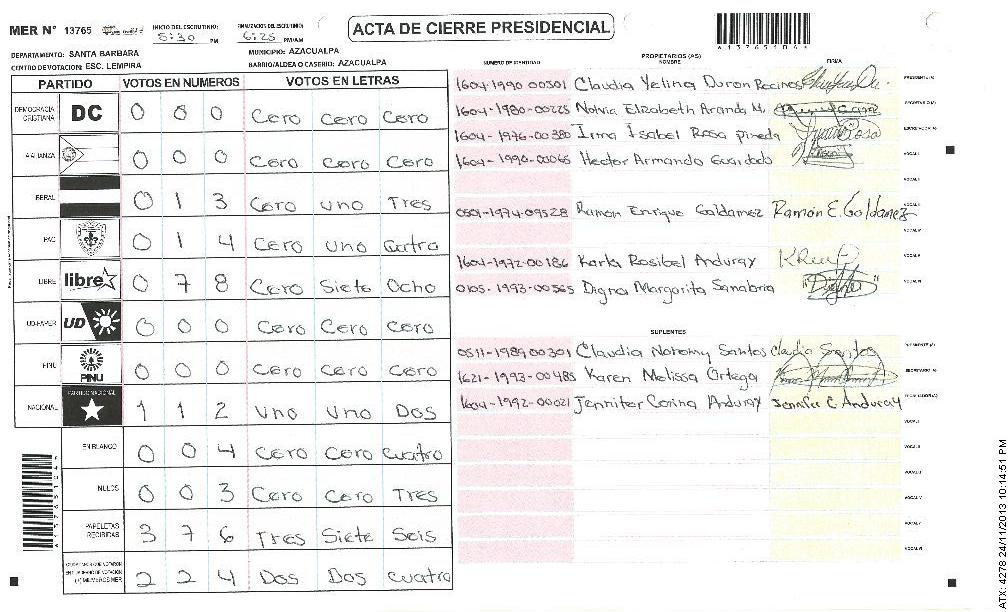 MER Nº 13765
INICIO DEL ESCRUTINIO: 5:30 PM
FINALIZACION DEL ESCRUTINIO: 6:25 PM/AM
ACTA DE CIERRE PRESIDENCIAL
DEPARTAMENTO: SANTA BARBARA
MUNICIPIO: AZACUALPA
CENTRO DE VOTACION: ESC. LEMPIRA
BARRIO/ALDEA O CASERIO: AZACUALPA
PARTIDO VOTOS EN NUMEROS VOTOS EN LETRAS
DEMOCRACIA CRISTIANA DC 0 0 0 Cero Cero Cero
ALIANZA 0 0 0 Cero Cero Cero
BERAL 0 1 3 Cero Uno Tres
PAC 0 1 4 Cero Uno Catro
LIBRE libre 0 7 8 Cero Siete Ocho
UD-FAPER UD 0 0 0 Cero Cero Cero
PINU PINU 0 0 0 Cero Cero Cero
NACIONAL PARTIDO NACIONAL 1 1 2 Uno Uno Dos
EN BLANCO 0 0 4 Cero Cero Cuatro
NULOS 0 0 3 Cero Cero Tres
PAPELETAS RECIBIDAS 3 7 6 Tres Siete Seis
2 2 4 Dos Dos Cuatro
NUMERO DE IDENTIDAD PROPIETARIOS (AS) NOMBRE FIRMA
1604-1990-00301 Claudia Yelina Duron Recinos PRESIDENTE (A)
1604-1980-00225 Nohia Elizabeth Aranda M. SECRETARIO (A)
1604-1976-00380 Irma Isabel Rosa pineda ESCRUTADOR (A)
1604-1990-00065 Hector Armando Guardado VOCAL I
VOCAL II
0501-1974-09528 Ramon Enrique Galdamez Ramón E. Galdamez VOCAL III
VOCAL IV
1604-1972-00186 Karla Rosibel Anduray VOCAL V
0105-1993-00365 Digna Margarita Sanabria "Digna" VOCAL VI
SUPLENTES
0511-1989-00301 Claudia Noromy Santos Claudia Santos PRESIDENTE (A)
1621-1993-00485 Karen Melissa Ortega SECRETARIO (A)
1604-1992-00021 Jennifer Corina Anduray Jennifer C Anduray ESCRUTADOR (A)
VOCAL I
VOCAL II
VOCAL III
VOCAL IV
VOCAL V
VOCAL VI
ATX: 4278 24/11/2013 10:14:51 PM